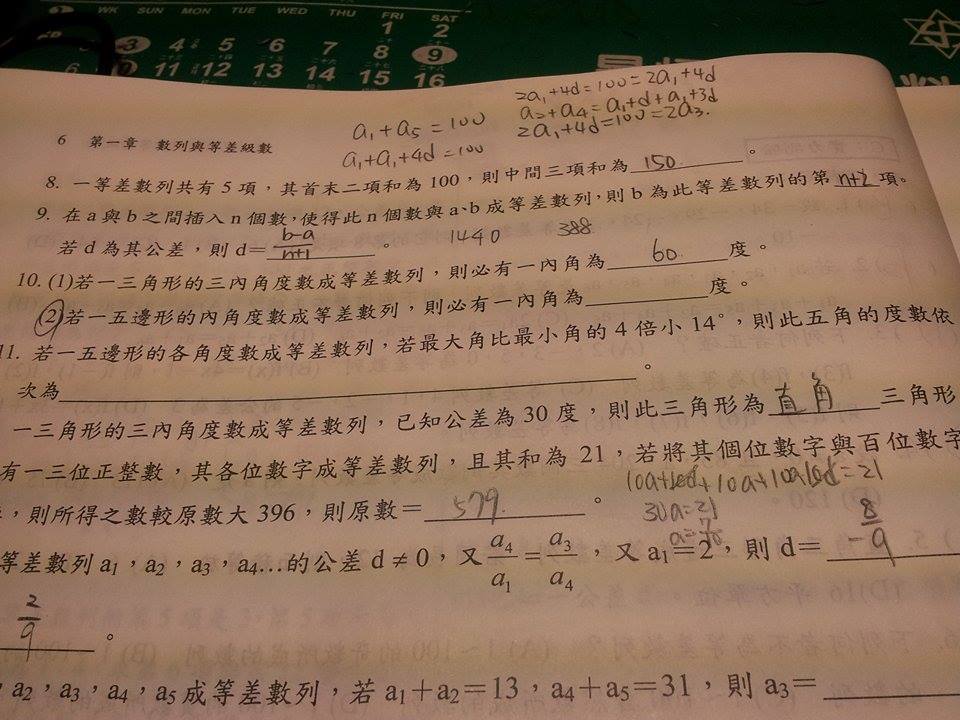 WK SUN MON TUE WED THU FRI SAT
1 2
3 4 5 6 7 8 9
10 11 12 13 14 15 16
2a₁+4d=100=2a₁+4d
a₁+a₅=100 a₂+a₄=a₁+d+a₁+3d
a₁+a₁+4d=100 2a₁+4d=100=2a₃.
6 第一章 數列與等差級數
8. 一等差數列共有 5 項，其首末二項和為 100，則中間三項和為 150. 。
9. 在 a 與 b 之間插入 n 個數，使得此 n 個數與 a、b 成等差數列，則 b 為此等差數列的第 n+2 項。
若 d 為其公差，則 d= b-a/n+1 。 1440 388
10. (1)若一三角形的三內角度數成等差數列，則必有一內角為 60 度。
(2)若一五邊形的內角度數成等差數列，則必有一內角為 度。
11. 若一五邊形的各角度數成等差數列，若最大角比最小角的 4 倍小 14°，則此五角的度數依
次為 。
一三角形的三內角度數成等差數列，已知公差為 30 度，則此三角形為 直角 三角形
有一三位正整數，其各位數字成等差數列，且其和為 21，若將其個位數字與百位數字
，則所得之數較原數大 396，則原數= 579 。
30a=21
等差數列 a₁，a₂，a₃，a₄…的公差 d≠0，又 a₄/a₁ = a₃/a₄，又 a₁=2，則 d= -8/9
2/9 。
，a₂，a₃，a₄，a₅ 成等差數列，若 a₁+a₂=13，a₄+a₅=31，則 a₃=